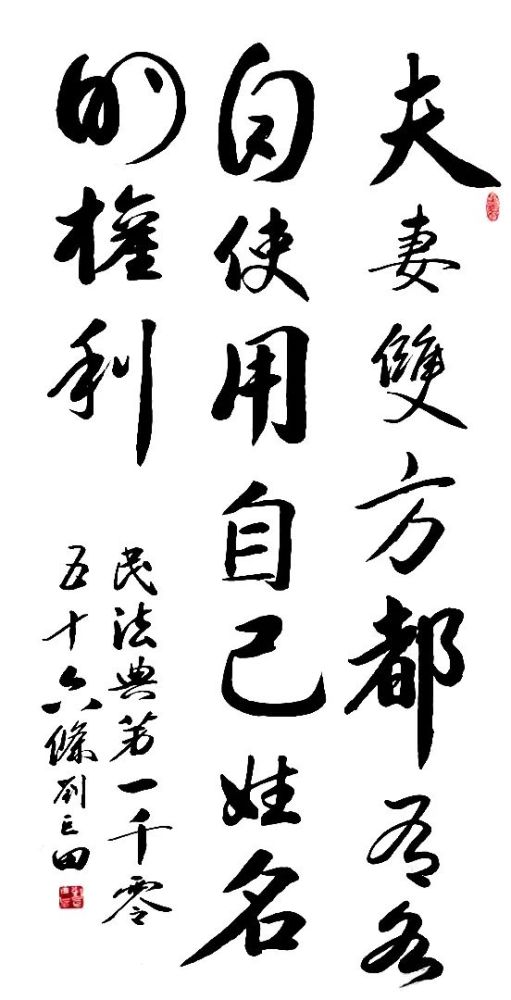 夫妻雙方都有各
自使用自己姓名
的權利
民法典第一千零
五十六條劉巨田